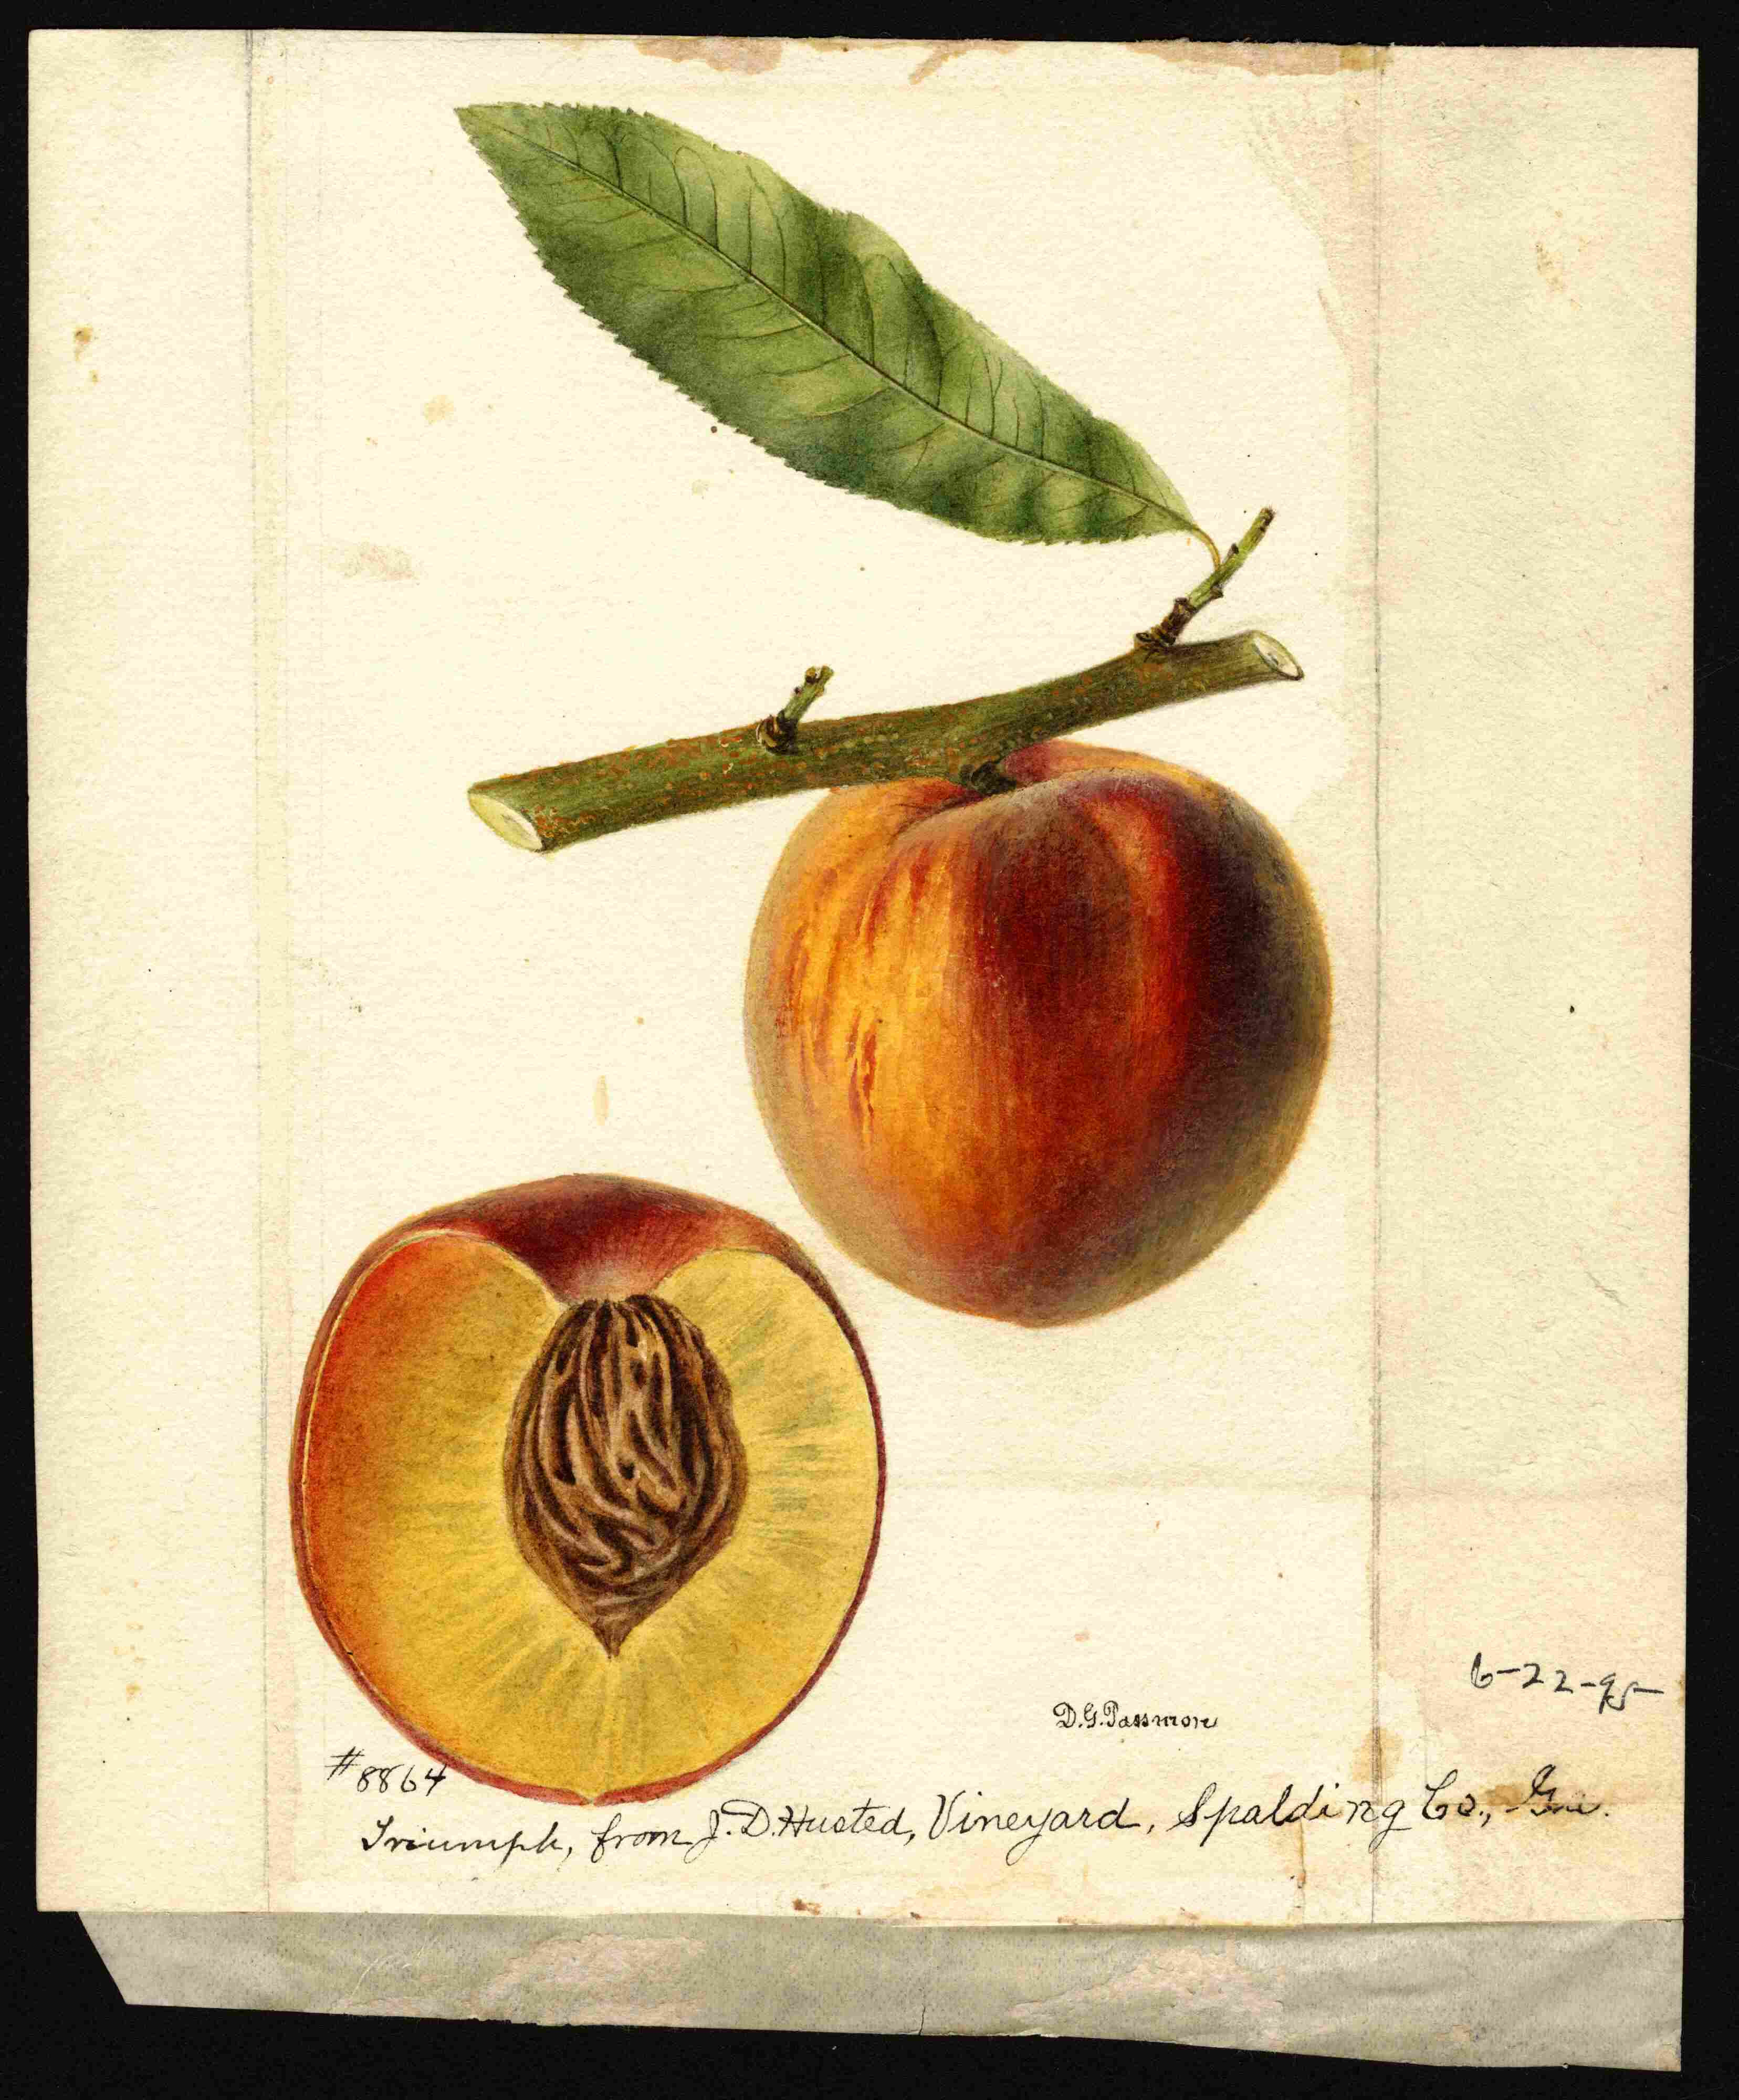 6-22-95
D.G.Passmore
#8864
Triumph, from J.D.Husted, Vineyard, Spalding Co., Ga.